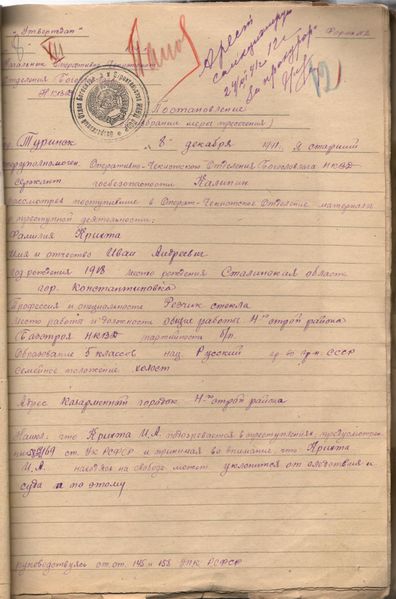 „Утверждаю"
Форма №2
Начальник Оперативно-Чекистского
Отделения
НКВД
Арест
санкционирую
Постановление
(Избрания меры пресечения)
гор. Туринск "8" декабря 1941. Я старший
оперуполномочен. Оперативно-Чекистского Отделения Богословлага НКВД
Сержант госбезопасности Калинин
рассмотрев поступившие в Операт-Чекистское Отделение материалы
о преступной деятельности:
Фамилия Крикта
Имя и отчество Иван Андреевич
год рождения 1918 место рождения Сталинская область
гор. Константиновка
Профессия и специальность Резчик стекла
место работы и должность общие работы 4-ый строй района
Базстроя НКВД партийность б/п.
Образование 5 классов нац. Русский СССР
Семейное положение холост
Адрес Казарменный городок 4-ый строй района
Нашел: что Крикта И.А. подозревается в преступлениях, предусмотрен-
ных 169 ст. УК РСФСР и принимая во внимание, что Крикта
И.А. находясь на свободе может уклонится от следствия и
суда а по этому
Руководствуясь ст.ст. 145 и 158 УПК РСФСР